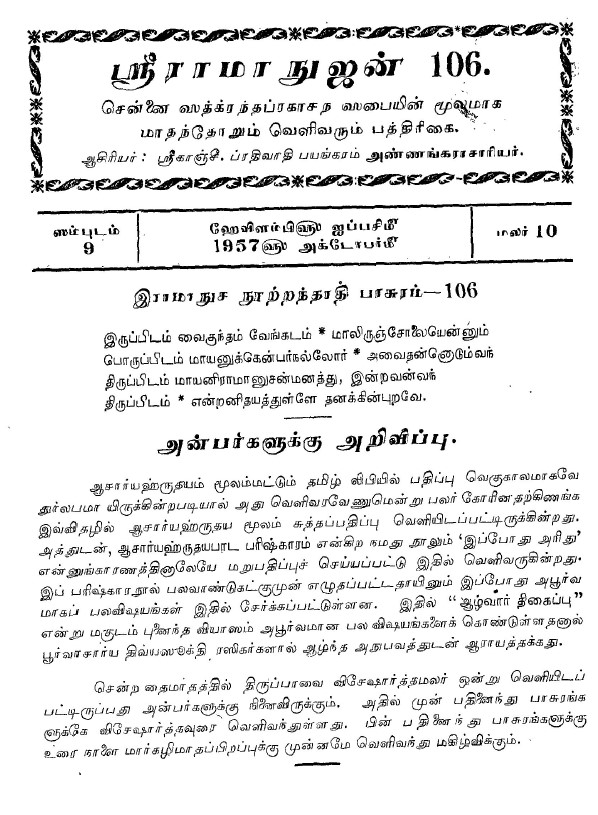 ஸ்ரீராமாநுஜன் 106.
சென்னை ஸத்க்ரந்தப்ரகாசந ஸபையின் மூலமாக
மாதந்தோறும் வெளிவரும் பத்திரிகை.
ஆசிரியர் : ஸ்ரீகாஞ்சீ. ப்ரதிவாதி பயங்கரம் அண்ணங்கராசாரியர்.
ஸம்புடம்
9
ஹேவிளம்பி௵ ஐப்பசி௴
1957௵ அக்டோபர்௴
மலர் 10
இராமாநுச நூற்றந்தாதி பாசுரம்—106
இருப்பிடம் வைகுந்தம் வேங்கடம் * மாலிருஞ்சோலையென்னும்
பொருப்பிடம் மாயனுக்கென்பர்நல்லோர் * அவைதன்னொடும்வந்
திருப்பிடம் மாயனிராமானுசன்மனத்து, இன்றவன்வந்
திருப்பிடம் * என்றனிதயத்துள்ளே தனக்கின்புறவே.
அன்பர்களுக்கு அறிவிப்பு.
ஆசார்யஹ்ருதயம் மூலம்மட்டும் தமிழ் லிபியில் பதிப்பு வெகுகாலமாகவே
துர்லபமா யிருக்கின்றபடியால் அது வெளிவரவேணுமென்று பலர் கோரினதற்கிணங்க
இவ்விதழில் ஆசார்யஹ்ருதய மூலம் சுத்தப்பதிப்பு வெளியிடப்பட்டிருக்கின்றது.
அத்துடன், ஆசார்யஹ்ருதயபாட பரிஷ்காரம் என்கிற நமது நூலும் ‘இப்போது அரிது’
என்னுங்காரணத்தினாலேயே மறுபதிப்புச் செய்யப்பட்டு இதில் வெளிவருகின்றது.
இப் பரிஷ்காரநூல் பலவாண்டுகட்குமுன் எழுதப்பட்டதாயினும் இப்போது அபூர்வ
மாகப் பலவிஷயங்கள் இதில் சேர்க்கப்பட்டுள்ளன. இதில் “ஆழ்வார் திகைப்பு”
என்று மகுடம் புனைந்த வியாஸம் அபூர்வமான பல விஷயங்களைக் கொண்டுள்ளதனால்
பூர்வாசார்ய திவ்யஸூக்தி ரஸிகர்களால் ஆழ்ந்த அநுபவத்துடன் ஆராயத்தக்கது.
சென்ற தைமாதத்தில் திருப்பாவை விசேஷார்த்தமலர் ஒன்று வெளியிடப்
பட்டிருப்பது அன்பர்களுக்கு நினைவிருக்கும். அதில் முன் பதினைந்து பாசுரங்க
ளுக்கே விசேஷார்த்தவுரை வெளிவந்துள்ளது. பின் பதினைந்து பாசுரங்களுக்கு
உரை நாளை மார்கழிமாதப்பிறப்புக்கு முன்னமே வெளிவந்து மகிழ்விக்கும்.